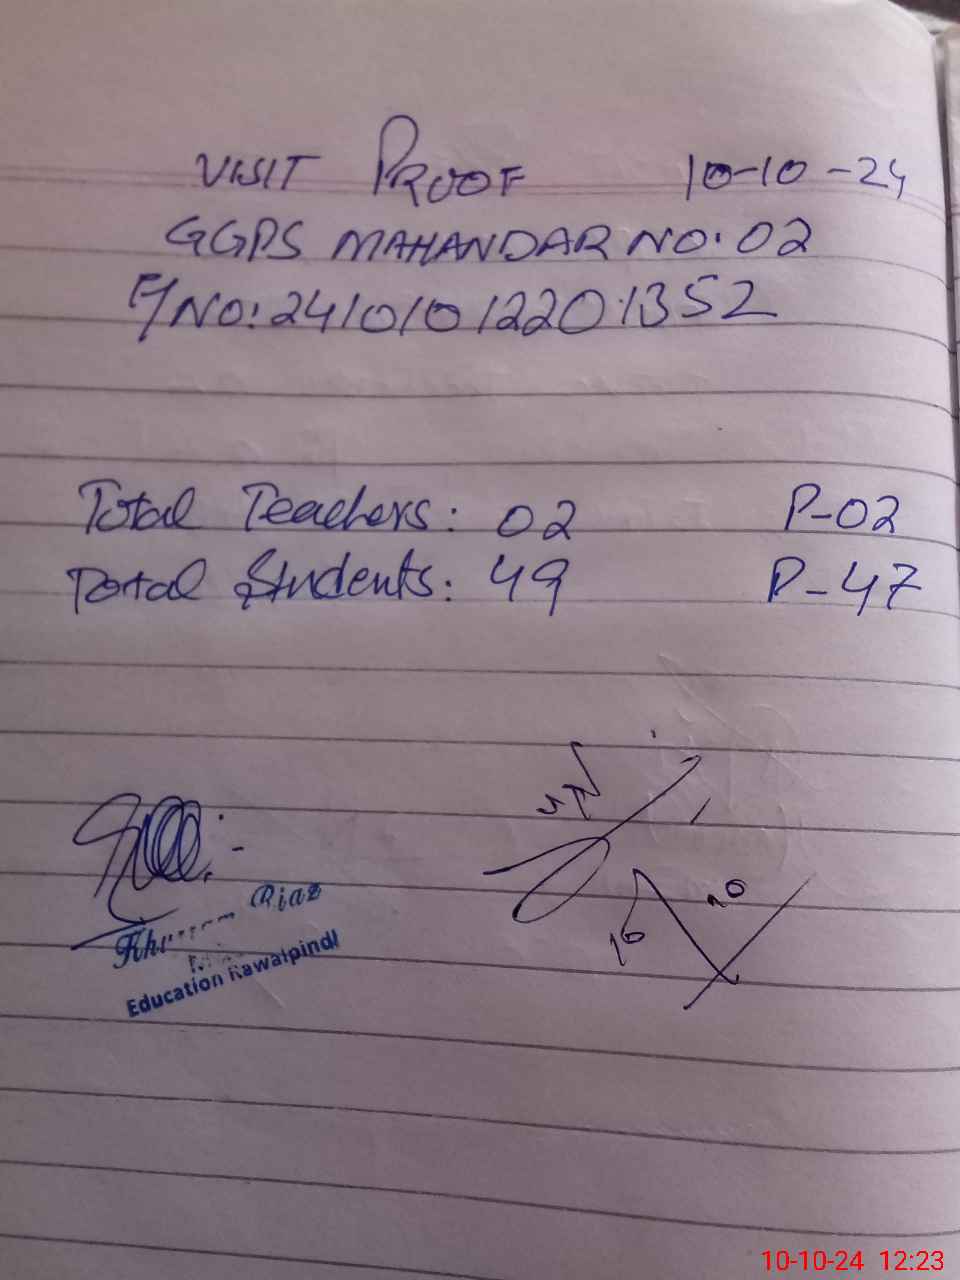 VISIT PROOF 10-10-24
GGPS MAHANDAR NO:02
F/NO:24101012201352
Total Teachers: 02 P-02
Total Students: 49 P-47
Riaz
Education Rawalpindi
10-10-24 12:23